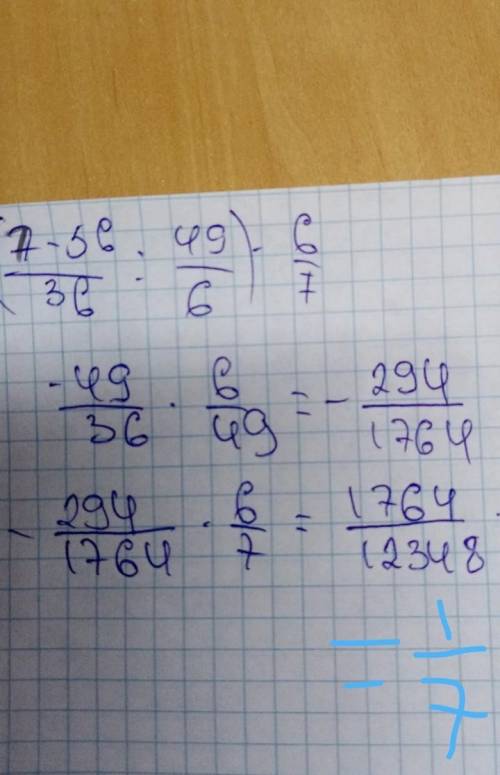 (7-56/36 : 49/6) · 6/7
-49/36 · 6/49 = - 294/1764
- 294/1764 · 6/7 = 1764/12348
= 1/7